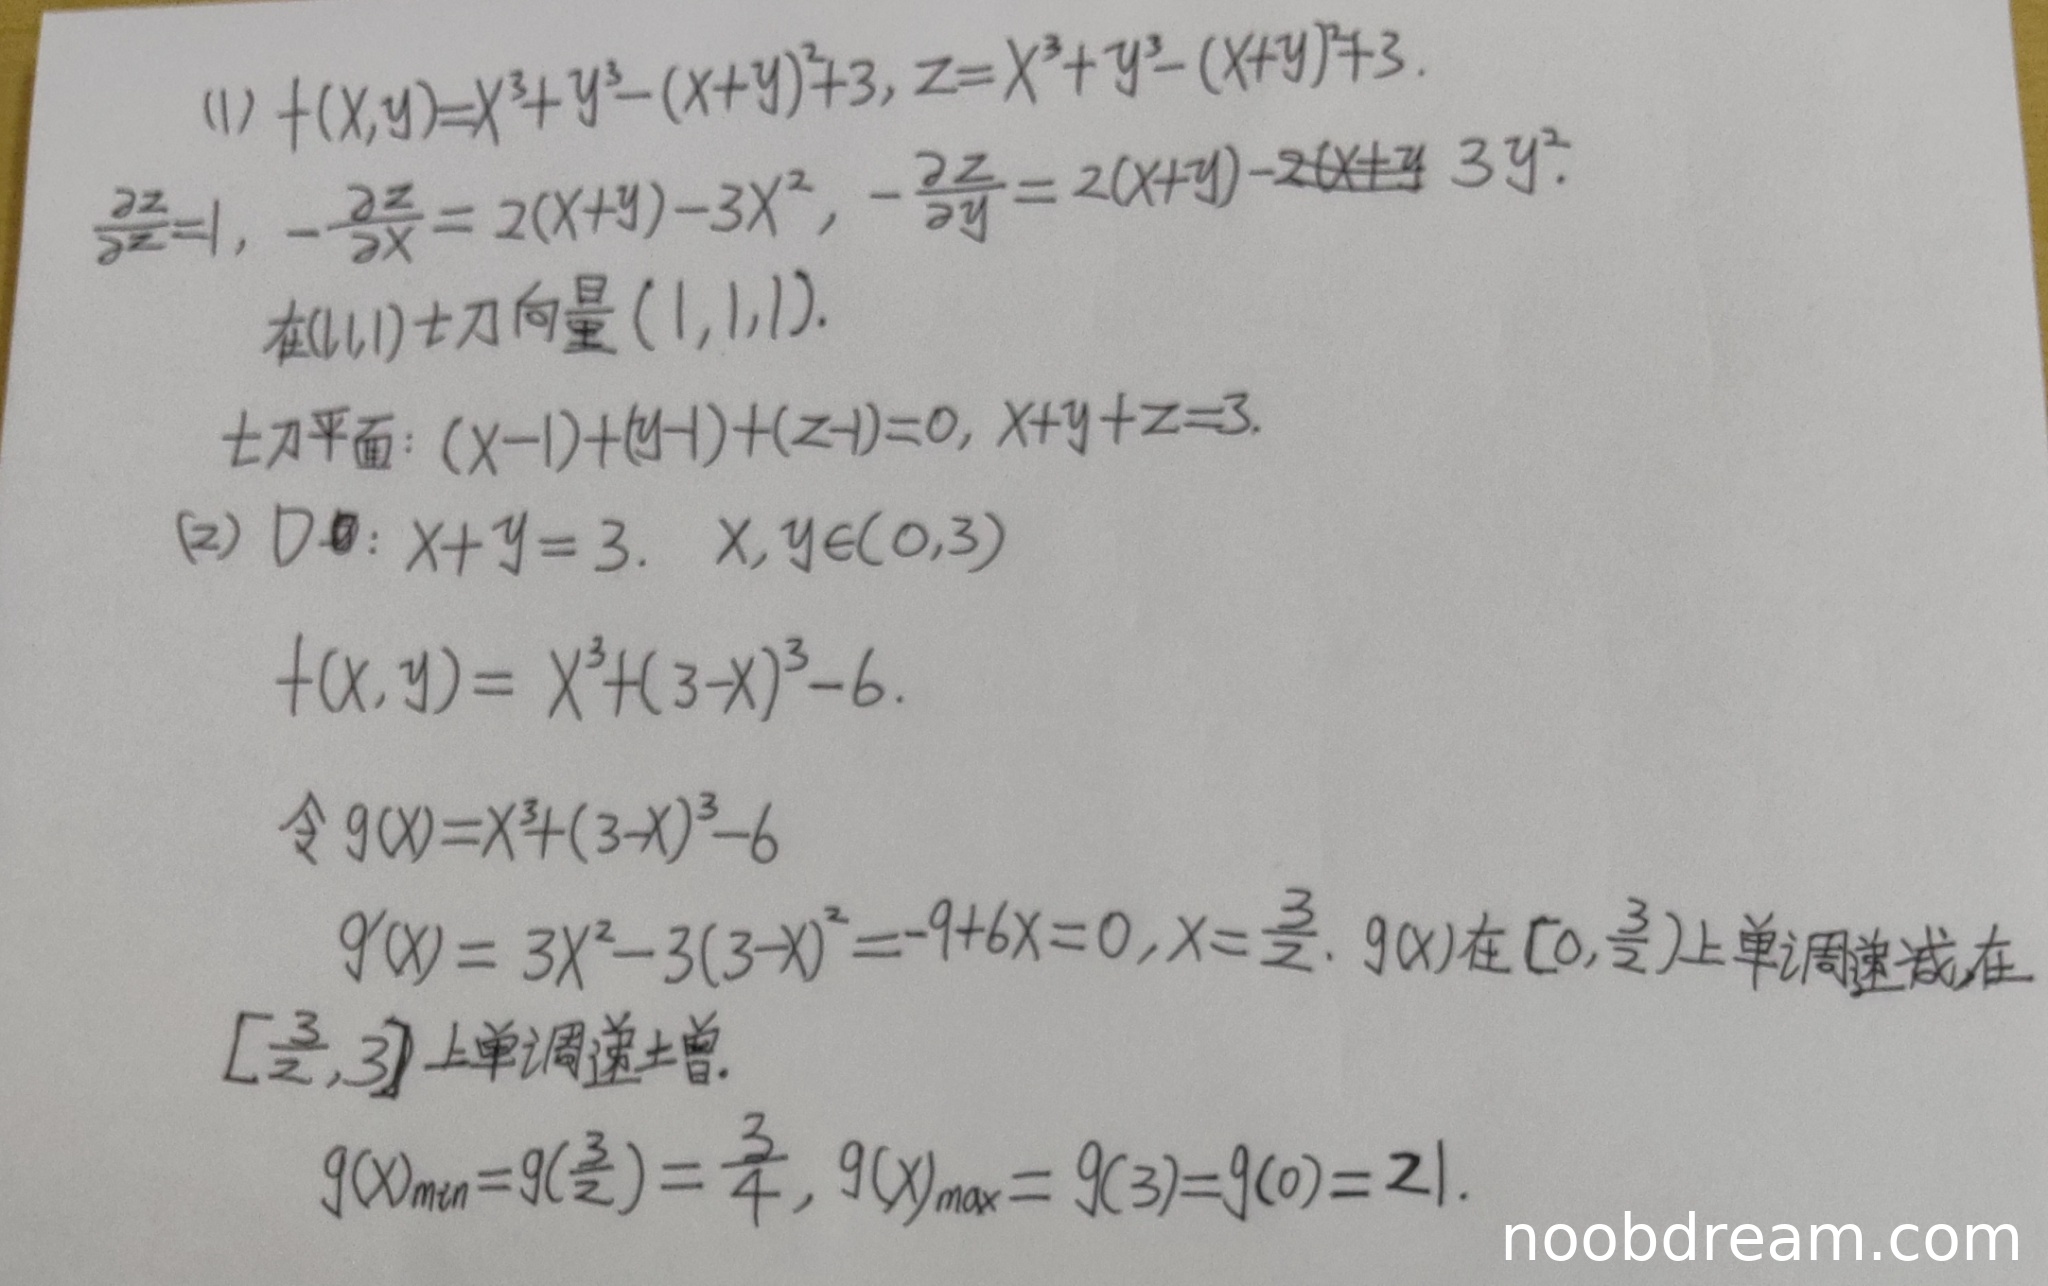 (1) f(x,y)=x³+y³-(x+y)²+3, z=x³+y³-(x+y)²+3.
∂z/∂z=1, -∂z/∂x=2(x+y)-3x², -∂z/∂y=2(x+y)-2(x+y 3y².
在(1,1,1)切向量(1,1,1).
切平面: (x-1)+(y-1)+(z-1)=0, x+y+z=3.
(2) D: x+y=3. x,y∈(0,3)
f(x,y)= x³+(3-x)³-6.
令g(x)=x³+(3-x)³-6
g'(x)=3x²-3(3-x)²=-9+6x=0, x=3/2. g(x)在[0,3/2)上单调递减,在
[3/2,3]上单调递增.
g(x)min=g(3/2)=3/4, g(x)max=g(3)=g(0)=21.
noobdream.com